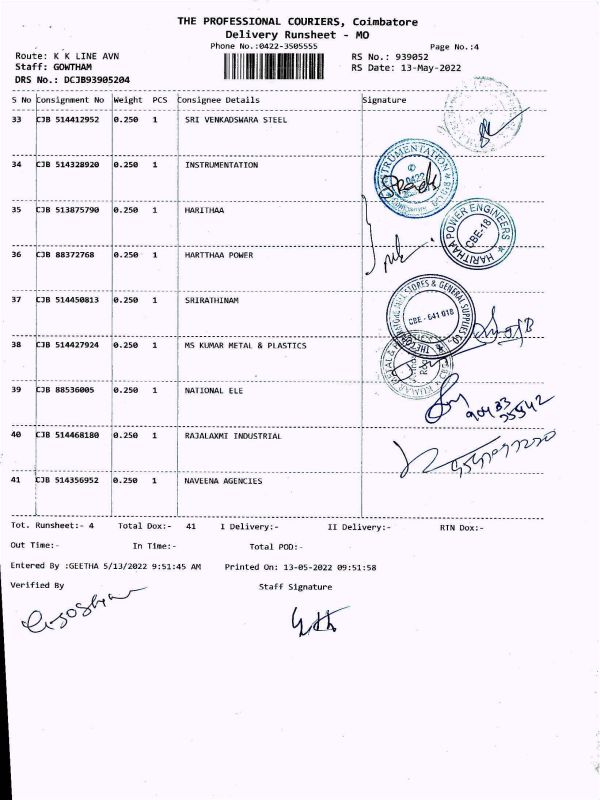 THE PROFESSIONAL COURIERS, Coimbatore
Delivery Runsheet - MO
Phone No.:0422-3505555
Page No.:4
Route: K K LINE AVN
RS No.: 939052
Staff: GOWTHAM
RS Date: 13-May-2022
DRS No.: DCJB93905204
S No Consignment No Weight PCS Consignee Details Signature
33 CJB 514412952 0.250 1 SRI VENKADSWARA STEEL
34 CJB 514328920 0.250 1 INSTRUMENTATION
INSTRUMENTATION
0422
35 CJB 513875790 0.250 1 HARITHAA
HARITHAA POWER ENGINEERS
CBE-18
36 CJB 88372768 0.250 1 HARTTHAA POWER
37 CJB 514450813 0.250 1 SRIRATHINAM
STORES & GENERAL SUPPLIES CO.
CBE - 641 018
38 CJB 514427924 0.250 1 MS KUMAR METAL & PLASTICS
39 CJB 88536005 0.250 1 NATIONAL ELE
40 CJB 514468180 0.250 1 RAJALAXMI INDUSTRIAL
41 CJB 514356952 0.250 1 NAVEENA AGENCIES
Tot. Runsheet:- 4 Total Dox:- 41 I Delivery:- II Delivery:- RTN Dox:-
Out Time:- In Time:- Total POD:-
Entered By :GEETHA 5/13/2022 9:51:45 AM Printed On: 13-05-2022 09:51:58
Verified By Staff Signature